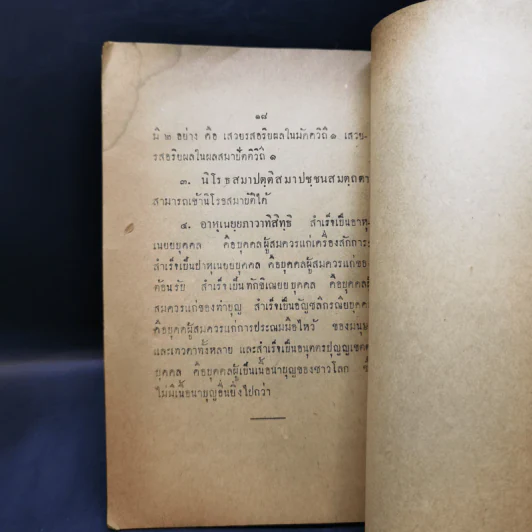 ๑๘
มี ๒ อย่าง คือ เสวยรสอริยผลในมัคควิถี ๑ เสวย-
รสอริยผลในผลสมาบัตติวิถี ๑
๓. นิโรธสมาปตฺติสมาปชฺชนสมตฺถตา
สามารถเข้านิโรธสมาบัติได้
๔. อาหุเนยฺยภาวาทิสิทฺธิ สำเร็จเป็นอาหุ-
เนยยบุคคล คือบุคคลผู้สมควรแก่เครื่องสักการะ
สำเร็จเป็นปาหุเนยยบุคคล คือบุคคลผู้สมควรแก่ของ
ต้อนรับ สำเร็จเป็นทักขิเณยยบุคคล คือบุคคลผู้
สมควรแก่ของทำบุญ สำเร็จเป็นอัญชลิกรณียบุคคล
คือบุคคลผู้สมควรแก่การประณมมือไหว้ ของมนุษ
และเทวดาทั้งหลาย และสำเร็จเป็นอนุตตรปุญญเขตต
บุคคล คือบุคคลผู้เป็นเนื้อนาบุญของชาวโลก
ไม่มีเนื้อนาบุญอื่นยิ่งไปกว่า